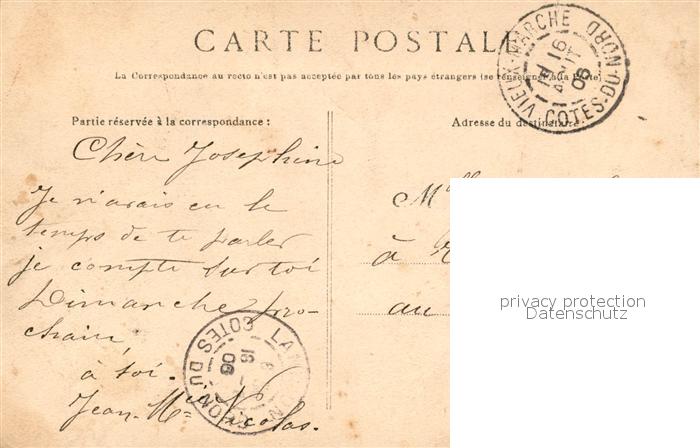 CARTE POSTALE
La Correspondance au recto n'est pas acceptée par tous les pays étrangers (se renseigner à la Poste)
VIEUX-MARCHE COTES-DU-NORD
16
06
Partie réservée à la correspondance :
Adresse du destinataire :
Chère Josephine
Je n'avais eu le
temps de te parler
je compte sur toi
Dimanche pro-
chain,
à toi.
Jean-Mie Nicolas.
Mlle
à
au
LANNION COTES DU NORD
16
06
privacy protection
Datenschutz